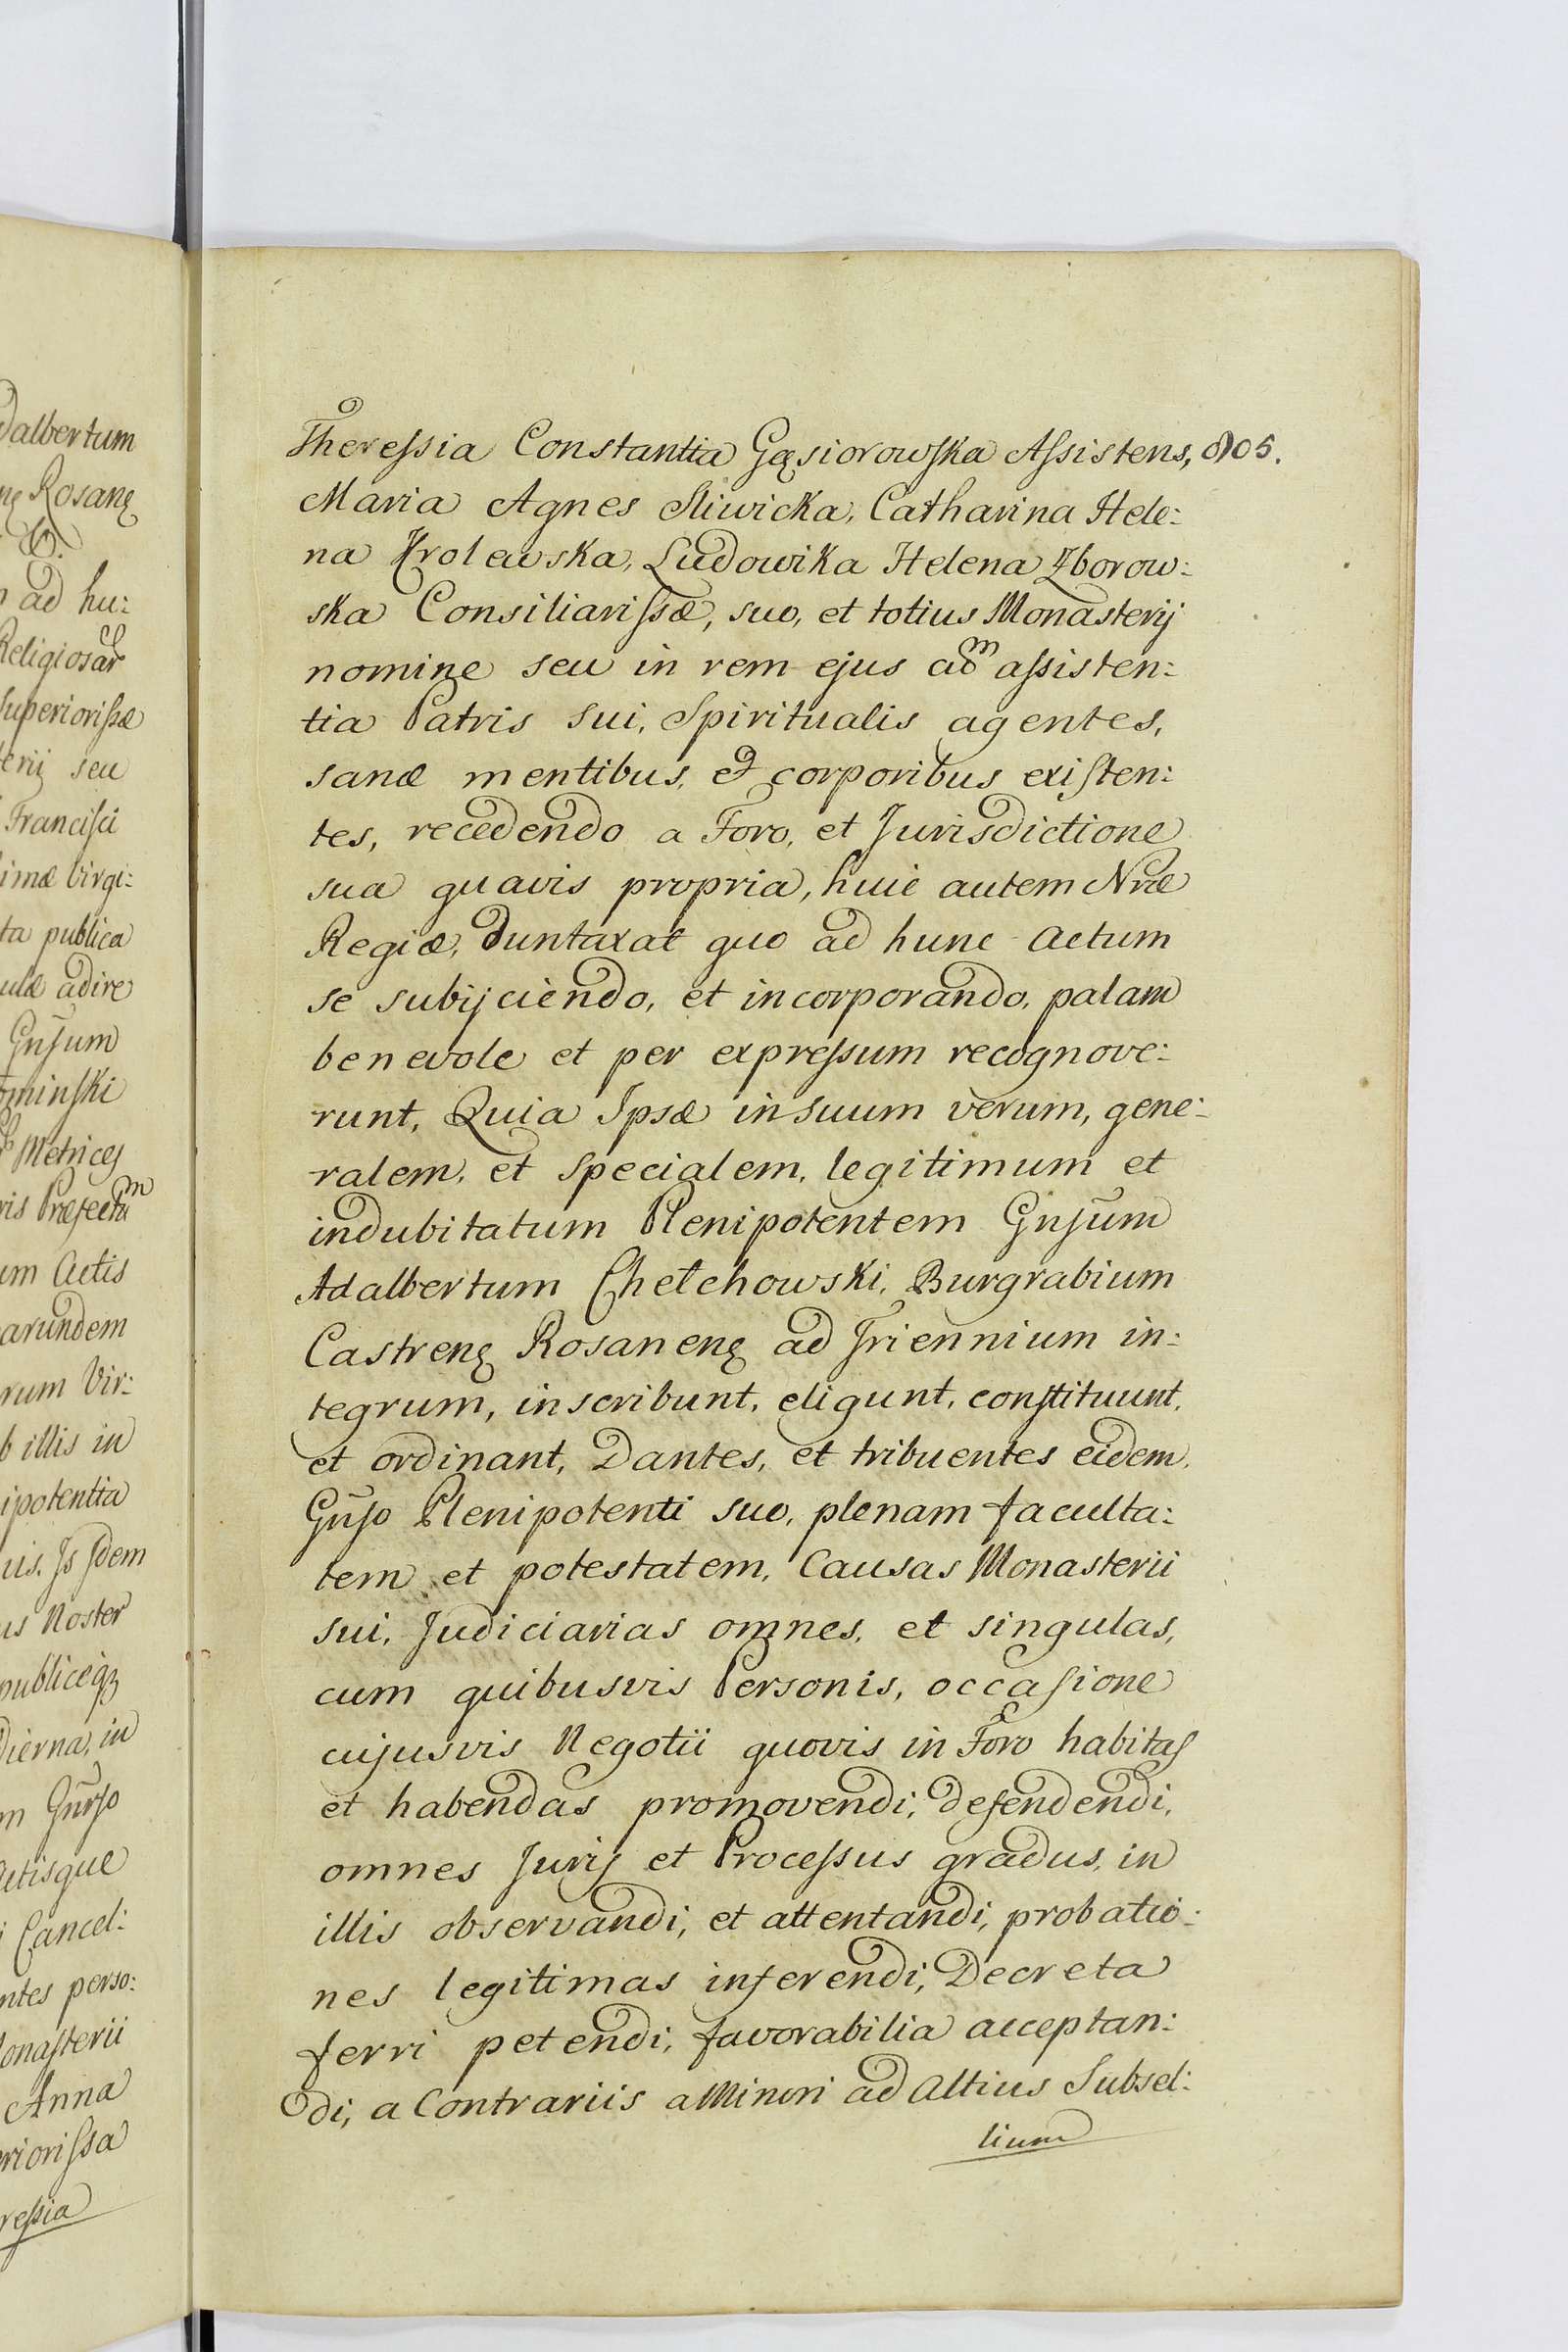 dalbertum
Rosanę
ad hu:
Religiosar
Superiorissæ
erii seu
Francisci
imæ Virgi:
ta publica
ulæ adire
Gnsum
minski
Metrices
ris Præfectum
um Actis
arundem
rum Vir:
b illis in
ipotentia
uis. Is Idem
us Noster
publiceq
dierna, in
m Gnrso
Actisque
i Cancel:
ntes perso:
Monasterii
Anna
riorissa
ressia
Theressia Constantia Gąsiorowska Assistens, 805.
Maria Agnes Sliwicka, Catharina Hele:
na Krolewska, Ludowika Helena Zborow:
ska Consiliarissæ, suo, et totius Monasterij
nomine seu in rem ejus adm assisten:
tia Patris sui, Spiritualis agentes,
sanæ mentibus, et corporibus existen:
tes, recedendo a Foro, et Jurisdictione
sua quavis propria, huic autem Nræ
Regiæ, duntaxat quo ad hunc Actum
se subijciendo, et incorporando, palam
benevole et per expressum recognove:
runt, Quia Ipsæ in suum verum, gene:
ralem, et specialem, legitimum et
indubitatum Plenipotentem Gnsum
Adalbertum Chełchowski, Burgrabium
Castrenę Rosanenę ad Triennium in:
tegrum, inscribunt, eligunt, constituunt,
et ordinant, Dantes, et tribuentes eidem,
Gnso Plenipotenti suo, plenam faculta:
tem et potestatem, Causas Monasterii
sui, Judiciarias omnes, et singulas,
cum quibusvis Personis, occasione
cujusvis Negotii quovis in Foro habitas
et habendas promovendi, defendendi,
omnes Juris et Processus gradus, in
illis observandi, et attentandi, probatio:
nes legitimas inferendi, Decreta
ferri petendi, favorabilia acceptan:
di, a Contrariis a Minori ad Altius Subsel:
lium